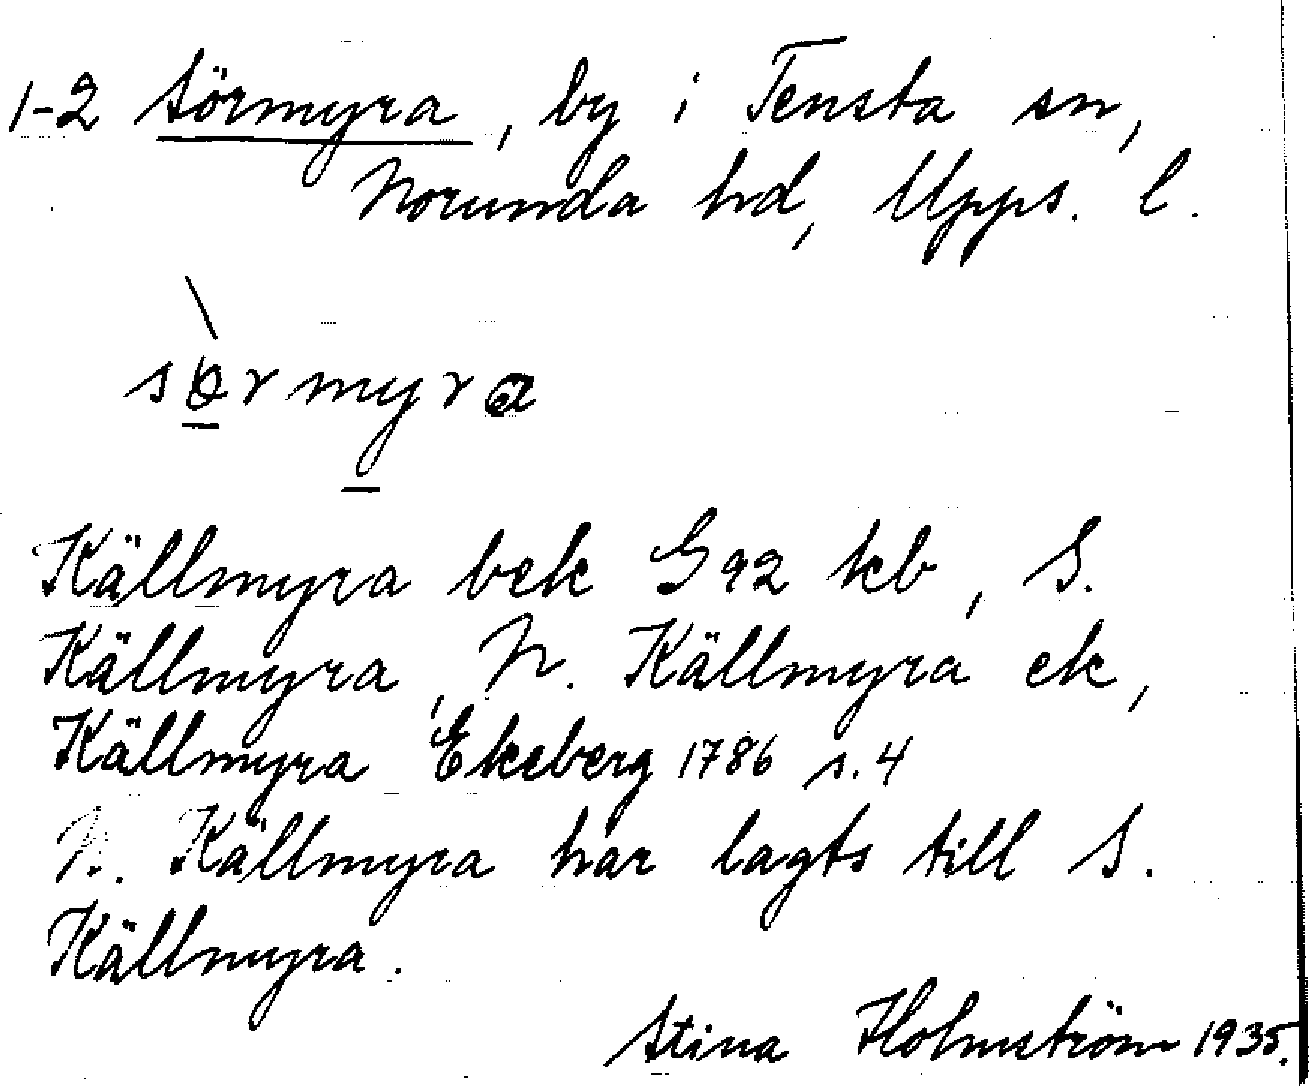 1-2 Sörmyra, by i Tensta sn,
Norunda hd, Upps. l.
sörmyra
Källmyra bek G92 kb, S.
Källmyra, N. Källmyra ek,
Källmyra Ekeberg 1786 s. 4
N. Källmyra har lagts till S.
Källmyra.
Stina Holmström 1935.